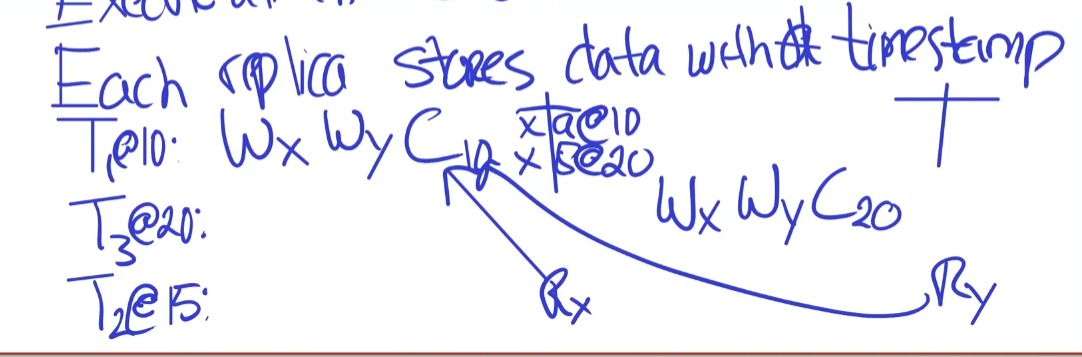 Each replica stores data with timestamp
T₁@10: Wx Wy C₁₀ x|a@10 T
x|b@20
T₃@20: Wx Wy C₂₀
T₂@15: Rx Ry